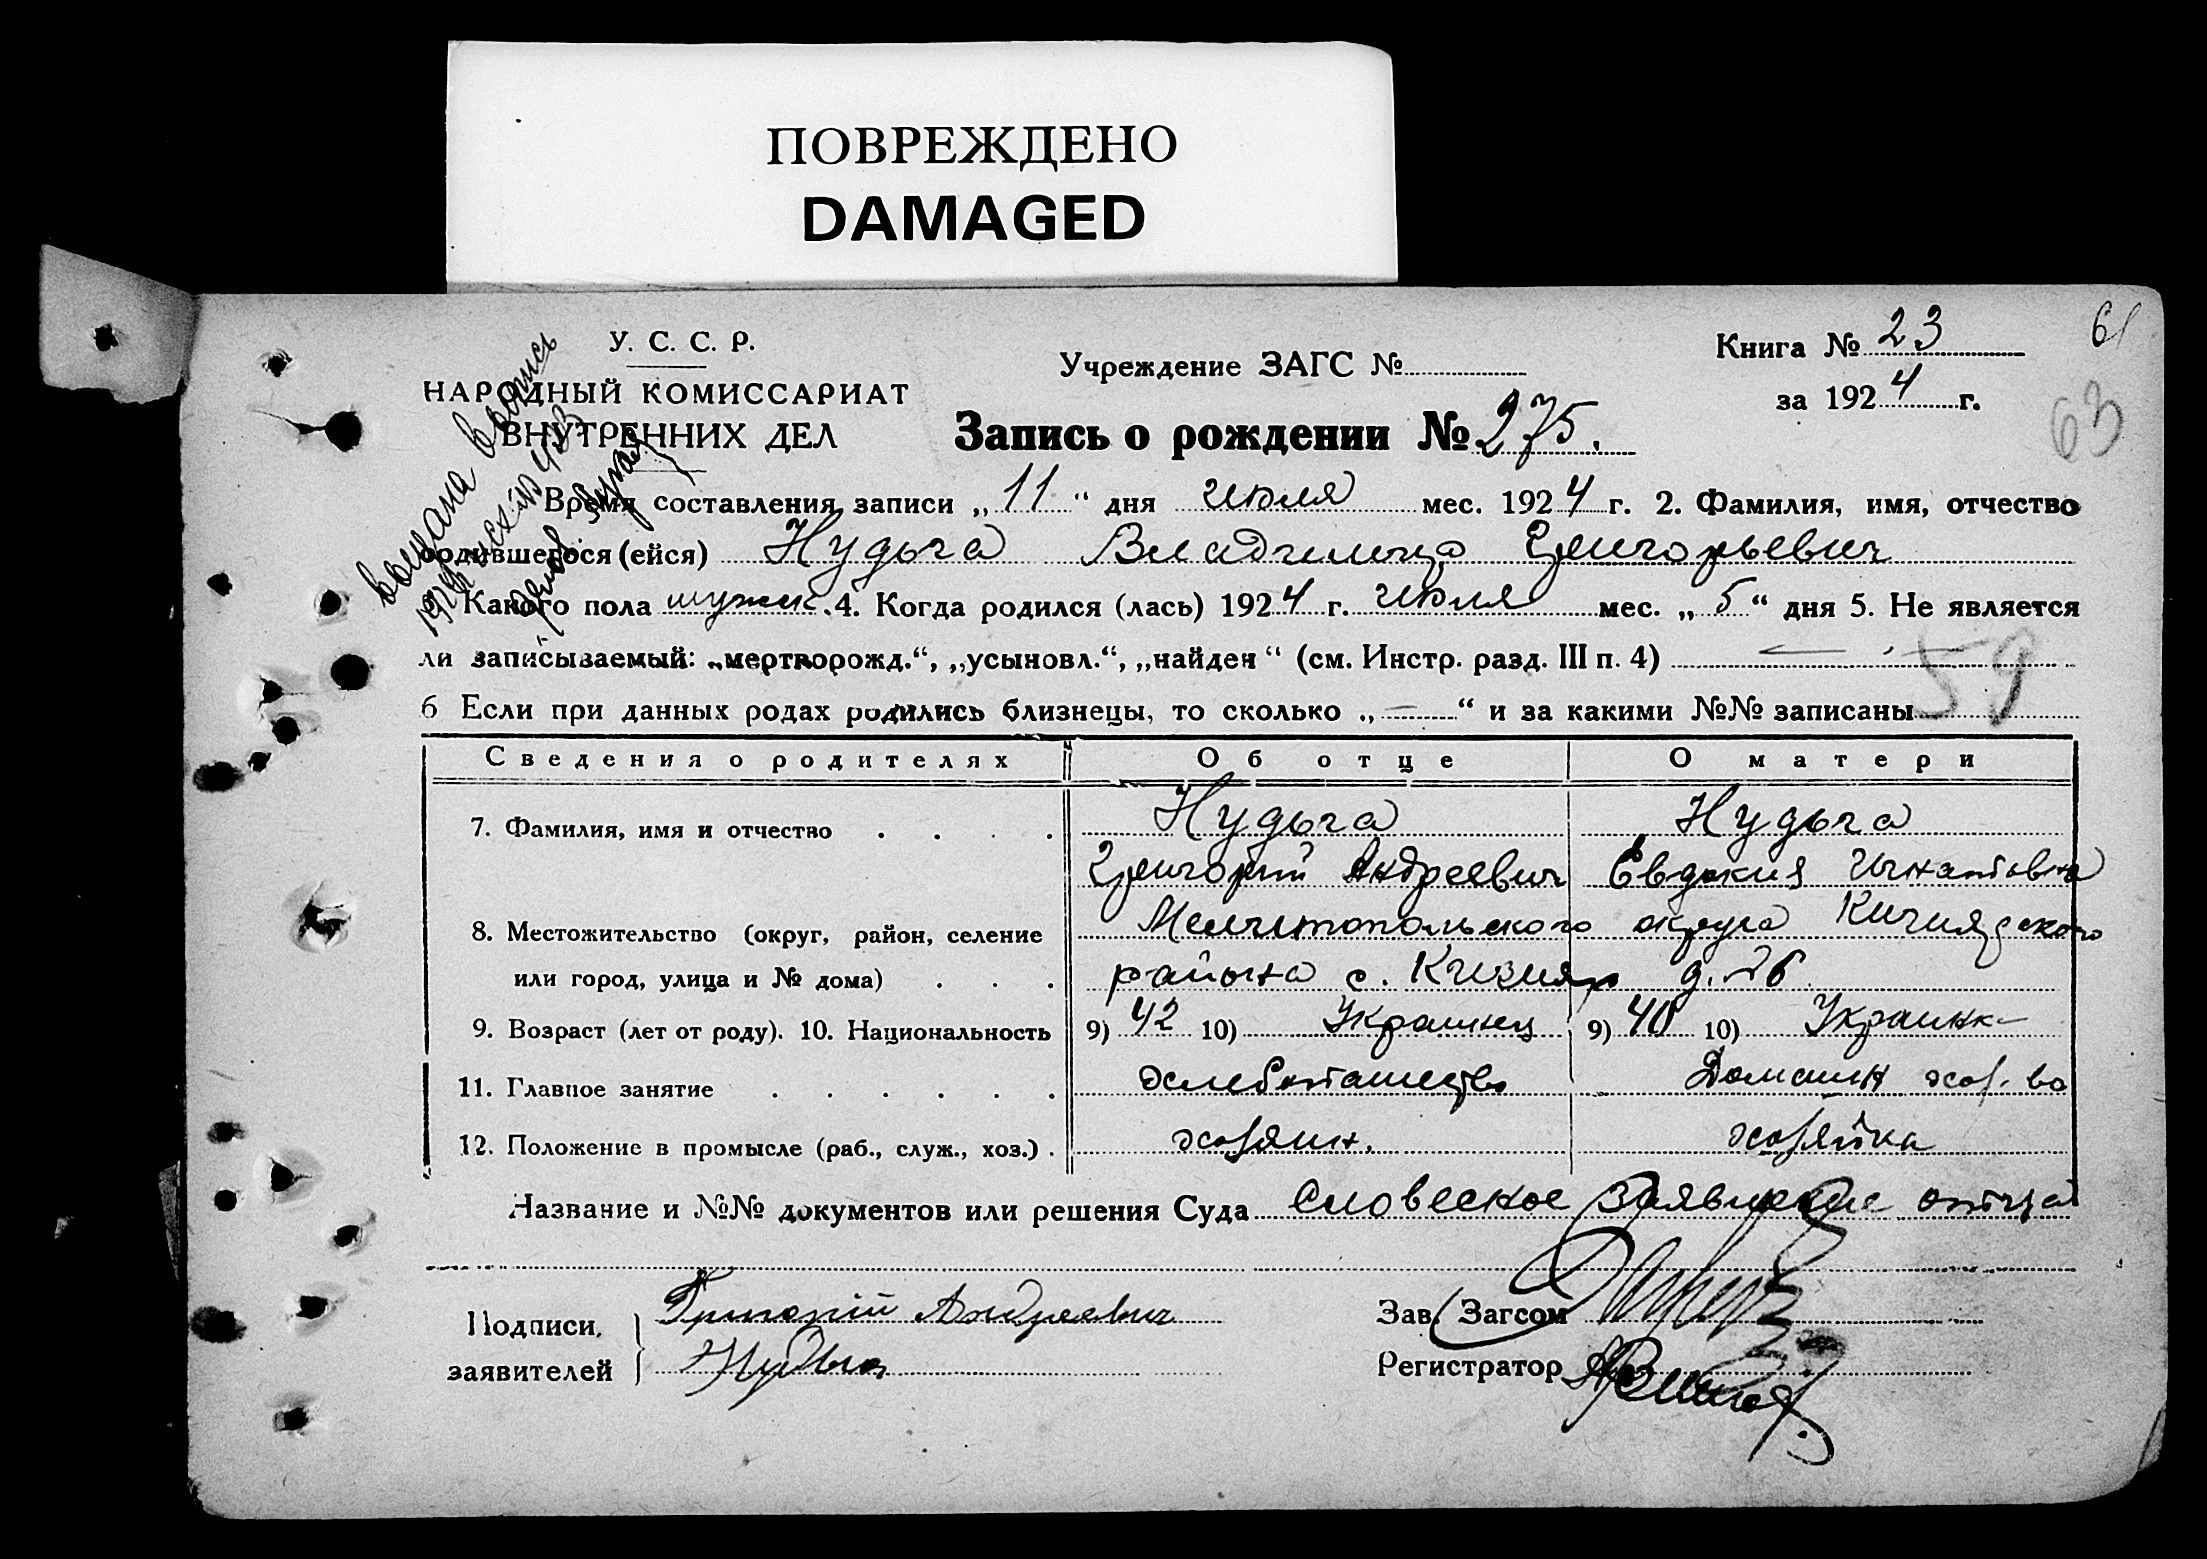 ПОВРЕЖДЕНО
DAMAGED
У. С. С. Р.
НАРОДНЫЙ КОМИССАРИАТ
ВНУТРЕННИХ ДЕЛ
Учреждение ЗАГС №
Книга № 23
за 1924 г.
61
63
Запись о рождении № 275.
Время составления записи „11“ дня июля мес. 1924 г. 2. Фамилия, имя, отчество
родившегося (ейся) Нудьга Владимир Григорьевич
Какого пола мужск. 4. Когда родился (лась) 1924 г. июля мес. „5“ дня 5. Не является
ли записываемый: „мертворожд.“, „усыновл.“, „найден“ (см. Инстр. разд. III п. 4) —
59
6 Если при данных родах родились близнецы, то сколько „—“ и за какими №№ записаны
Сведения о родителях Об отце О матери
7. Фамилия, имя и отчество . . . . Нудьга Нудьга
Григорий Андреевич Евдокия Игнатовна
8. Местожительство (округ, район, селение Мелитопольского округа
или город, улица и № дома) . . . района с. Кизияр д. 26
9. Возраст (лет от роду). 10. Национальность 9) 42 10) Украинец 9) 40 10) Украинк
11. Главное занятие . . . . . . хлебопашество Домашн хоз-во
12. Положение в промысле (раб., служ., хоз.) . хозяин. хозяйка
Название и №№ документов или решения Суда Словеское заявление отца
Подписи Григорій Андреевич
заявителей Нудьга
Зав. Загсом
Регистратор